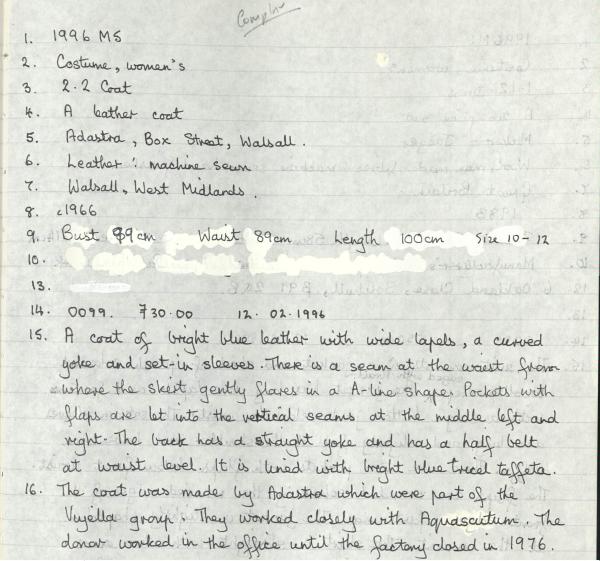 Complex
1. 1996 MS
2. Costume, women's
3. 2.2 Coat
4. A leather coat
5. Adastra, Box Street, Walsall.
6. Leather: machine sewn
7. Walsall, West Midlands.
8. c1966
9. Bust 89cm Waist 89cm Length 100cm Size 10-12
10.
13.
14. 0099. 730.00 12.02.1996
15. A coat of bright blue leather with wide lapels, a curved
yoke and set-in sleeves. There is a seam at the waist from
where the skirt gently flares in a A-line shape. Pockets with
flaps are let into the vertical seams at the middle left and
right. The back has a straight yoke and has a half belt
at waist level. It is lined with bright blue tricel taffeta.
16. The coat was made by Adastra which were part of the
Vyella group. They worked closely with Aquascutum. The
donor worked in the office until the factory closed in 1976.